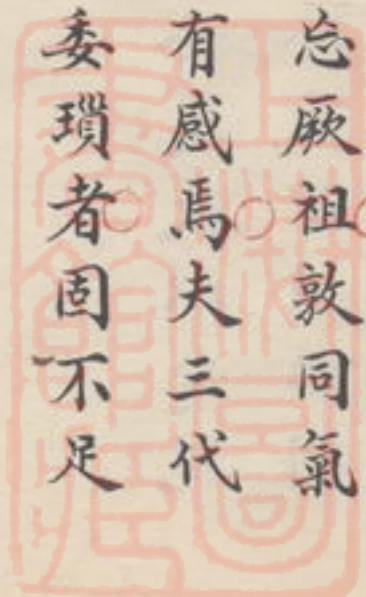 忘厥祖敦同氣
有感焉夫三代
委瑣者固不足